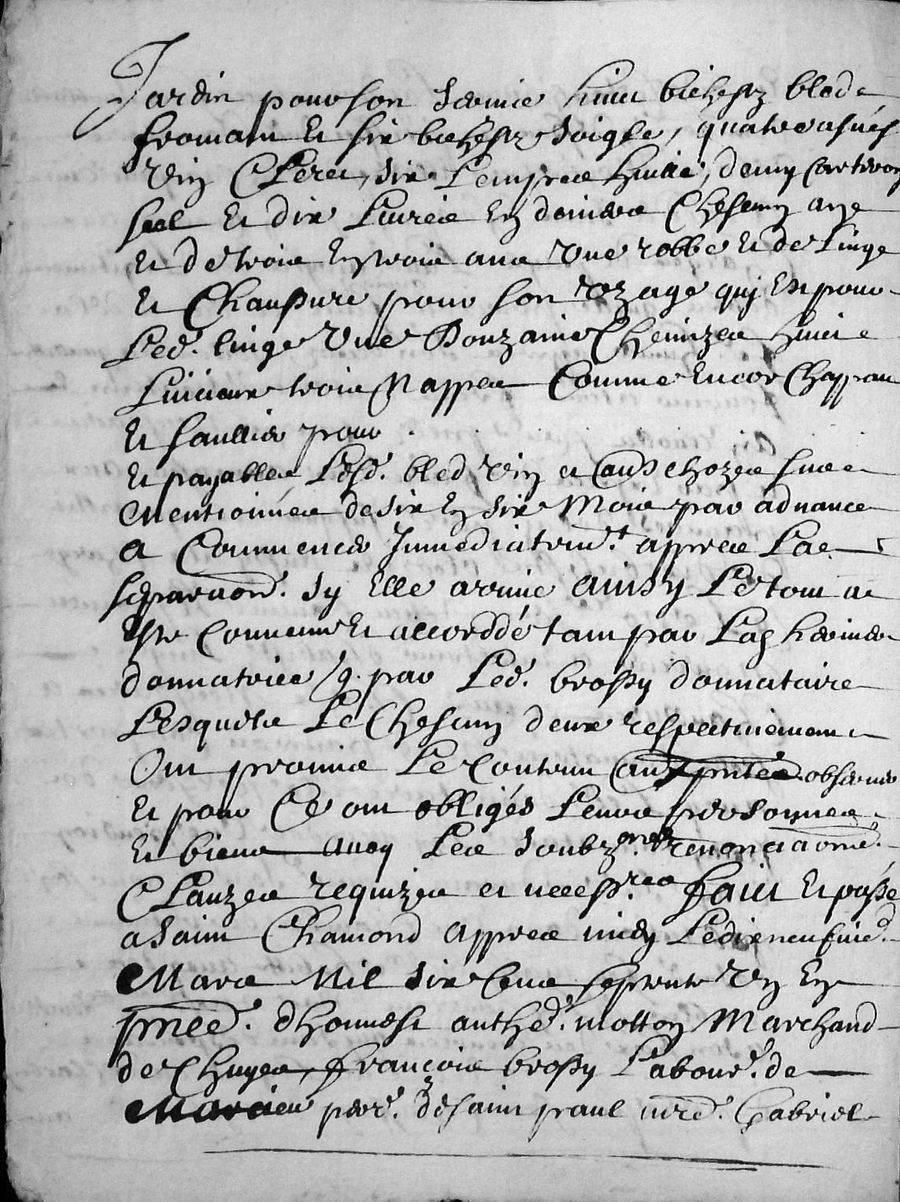 Jardin pour son service huict bichestz bled
fromant et six bichestz soigle, quatre asnés
vin Cleret, six Livres huile, demy carteron
seel et dix Livres en deniers Chescung an
et de trois en trois ans Une robbe et de Linge
et Chaussure pour son uzage qui est pour
Led. linge Une Douzaine Chemizes huict
Linceux trois Nappes Comme encor Chappeau
et soullier pour
et payables Lesd. bled vin et aus chozes sus
mentionnes de six en six Mois par advance
a Commencer Immediatemt. appres La
separaon. sy Elle arrive ainsy Le tout a
este Convenu et accorddé tant par Lad.
donnatrice q. par Led. brossy donnataire
Lesquels Le Chescung deux respectivement
Ont promis Le Contenu aux pntes observer
et pour Ce ont obligés Leurs personnes
et biens avec Les soubz.ons renonciaons.
Clauzes requizes et necessres faict et passé
a Saint Chamond appres midy Le dixneufvie.
Mars Mil six Cens septente Un En
pnce. d'honneste anthe. motton Marchand
de Chuyes, françois brossy Labour. de
per. de saint paul Gabriel